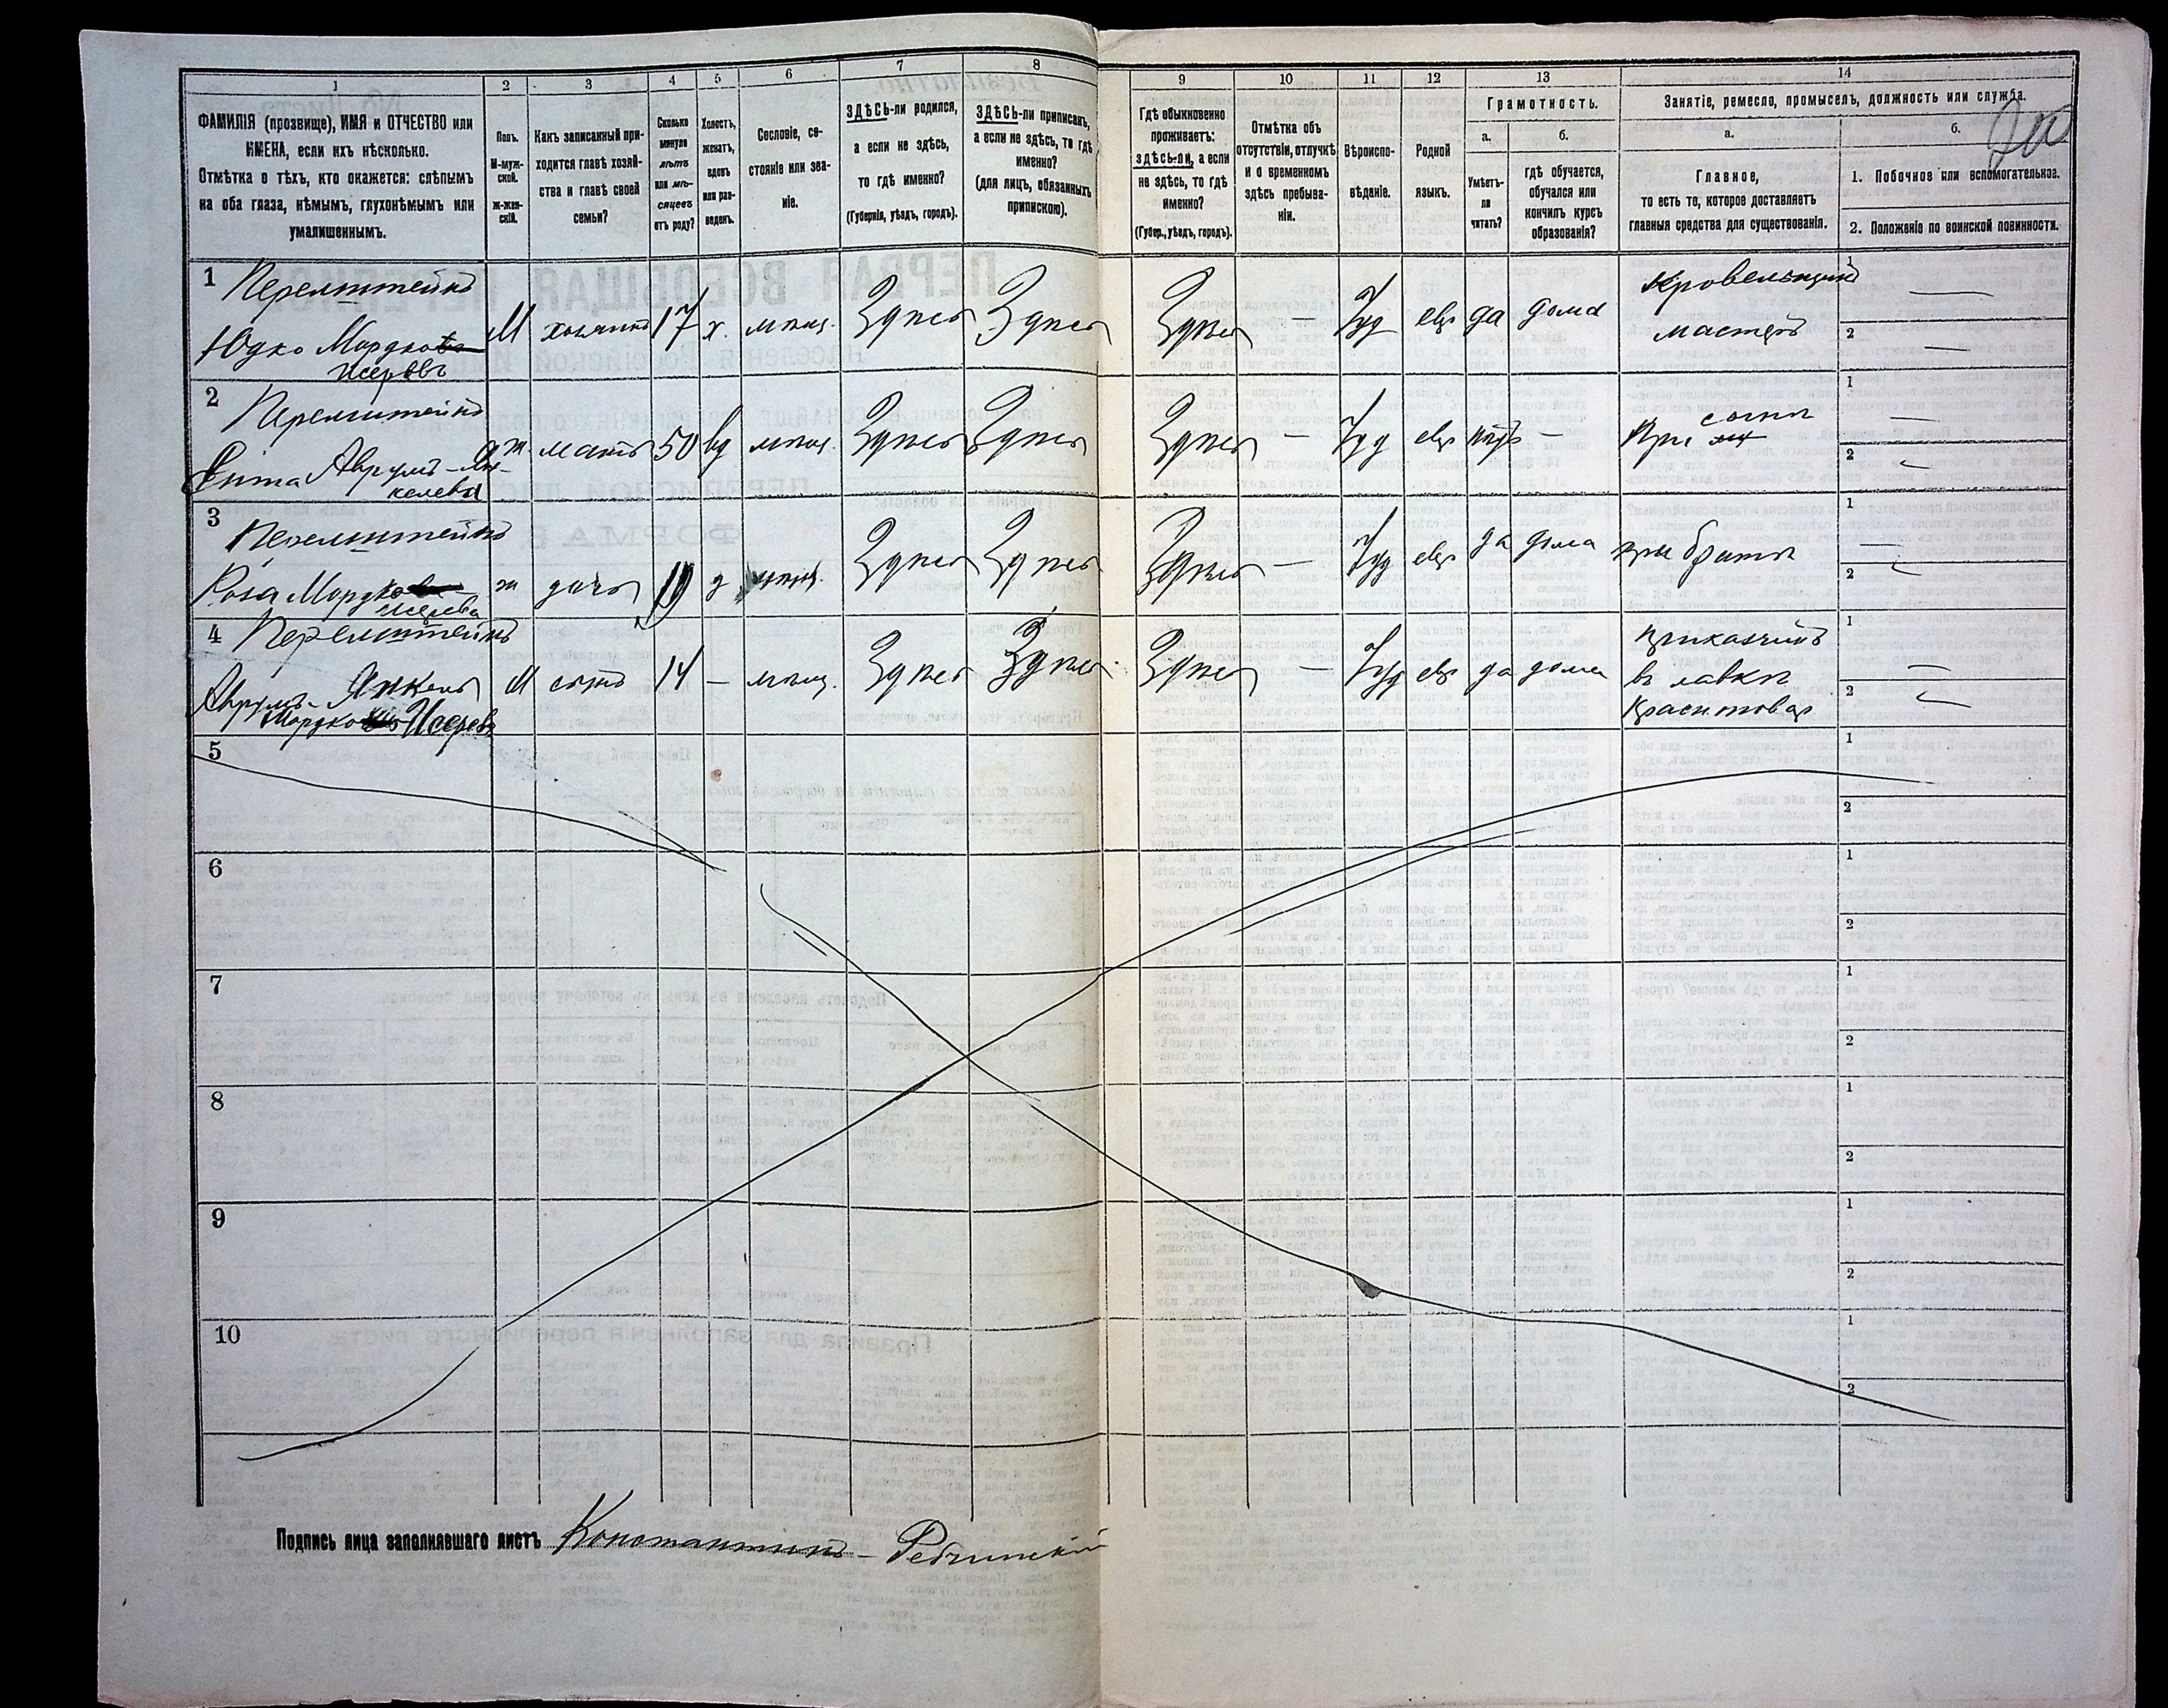 1 2 3 4 5 6 7 8 9 10 11 12 13 14
ФАМИЛІЯ (прозвище), ИМЯ и ОТЧЕСТВО или
ИМЕНА, если ихъ нѣсколько.
Отмѣтка о тѣхъ, кто окажется: слѣпымъ
на оба глаза, нѣмымъ, глухонѣмымъ или
умалишеннымъ.
Полъ.
М-муж-
ской.
Ж-жен-
скій.
Какъ записанный при-
ходится главѣ хозяй-
ства и главѣ своей
семьи?
Сколько
минуло
лѣтъ
или мѣ-
сяцевъ
отъ роду?
Холостъ,
женатъ,
вдовъ
или раз-
веденъ.
Сословіе, со-
стояніе или зва-
ніе.
ЗДѢСЬ-ли родился,
а если не здѣсь,
то гдѣ именно?
(Губернія, уѣздъ, городъ).
ЗДѢСЬ-ли приписанъ,
а если не здѣсь, то гдѣ
именно?
(для лицъ, обязанныхъ
припискою).
Гдѣ обыкновенно
проживаетъ:
здѣсь-ли, а если
не здѣсь, то гдѣ
именно?
(Губер., уѣздъ, городъ).
Отмѣтка объ
отсутствіи, отлучкѣ
и о временномъ
здѣсь пребыва-
ніи.
Вѣроиспо-
вѣданіе.
Родной
языкъ.
Грамотность.
а.
Умѣетъ-
ли
читать?
б.
гдѣ обучается,
обучался или
кончилъ курсъ
образованія?
Занятіе, ремесло, промыселъ, должность или служба.
а.
Главное,
то есть то, которое доставляетъ
главныя средства для существованія.
б.
1. Побочное или вспомогательное.
2. Положеніе по воинской повинности.
1 Перелштейнъ
Юдко Мордковъ
Исеровъ
М хозяинъ 17 х. мѣщ. Здѣсь Здѣсь Здѣсь — Іуд евр да дома
Кровельщикъ
мастеръ
1 —
2 —
2 Перелштейнъ
Ента Аврумъ-Ян-
келева
ж мать 50 вд мѣщ. Здѣсь Здѣсь Здѣсь — Іуд евр нѣтъ —
При сынѣ
1 —
2 —
3 Перелштейнъ
Роза Мордко
Исерева
ж дочь 19 д мѣщ. Здѣсь Здѣсь Здѣсь — Іуд евр да дома
при братѣ
1 —
2 —
4 Перелштейнъ
Аврумъ-Янкель
Мордко Исеровъ
М сынъ 14 — мѣщ. Здѣсь Здѣсь Здѣсь — Іуд евр да дома
Приказчикъ
въ лавкѣ
Краснотовар
1 —
2 —
5
1
2
6
1
2
7
1
2
8
1
2
9
1
2
10
1
2
Подпись лица заполнявшаго листъ Константинъ-